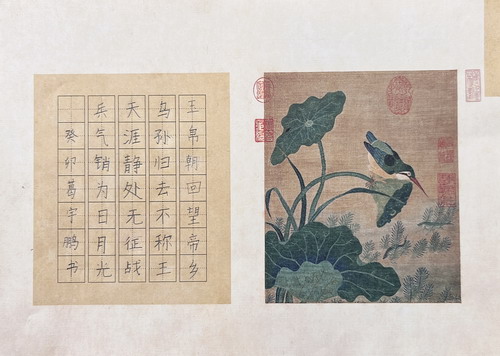 玉帛朝回望帝乡
乌孙归去不称王
天涯静处无征战
兵气销为日月光
癸卯葛宇鹏书